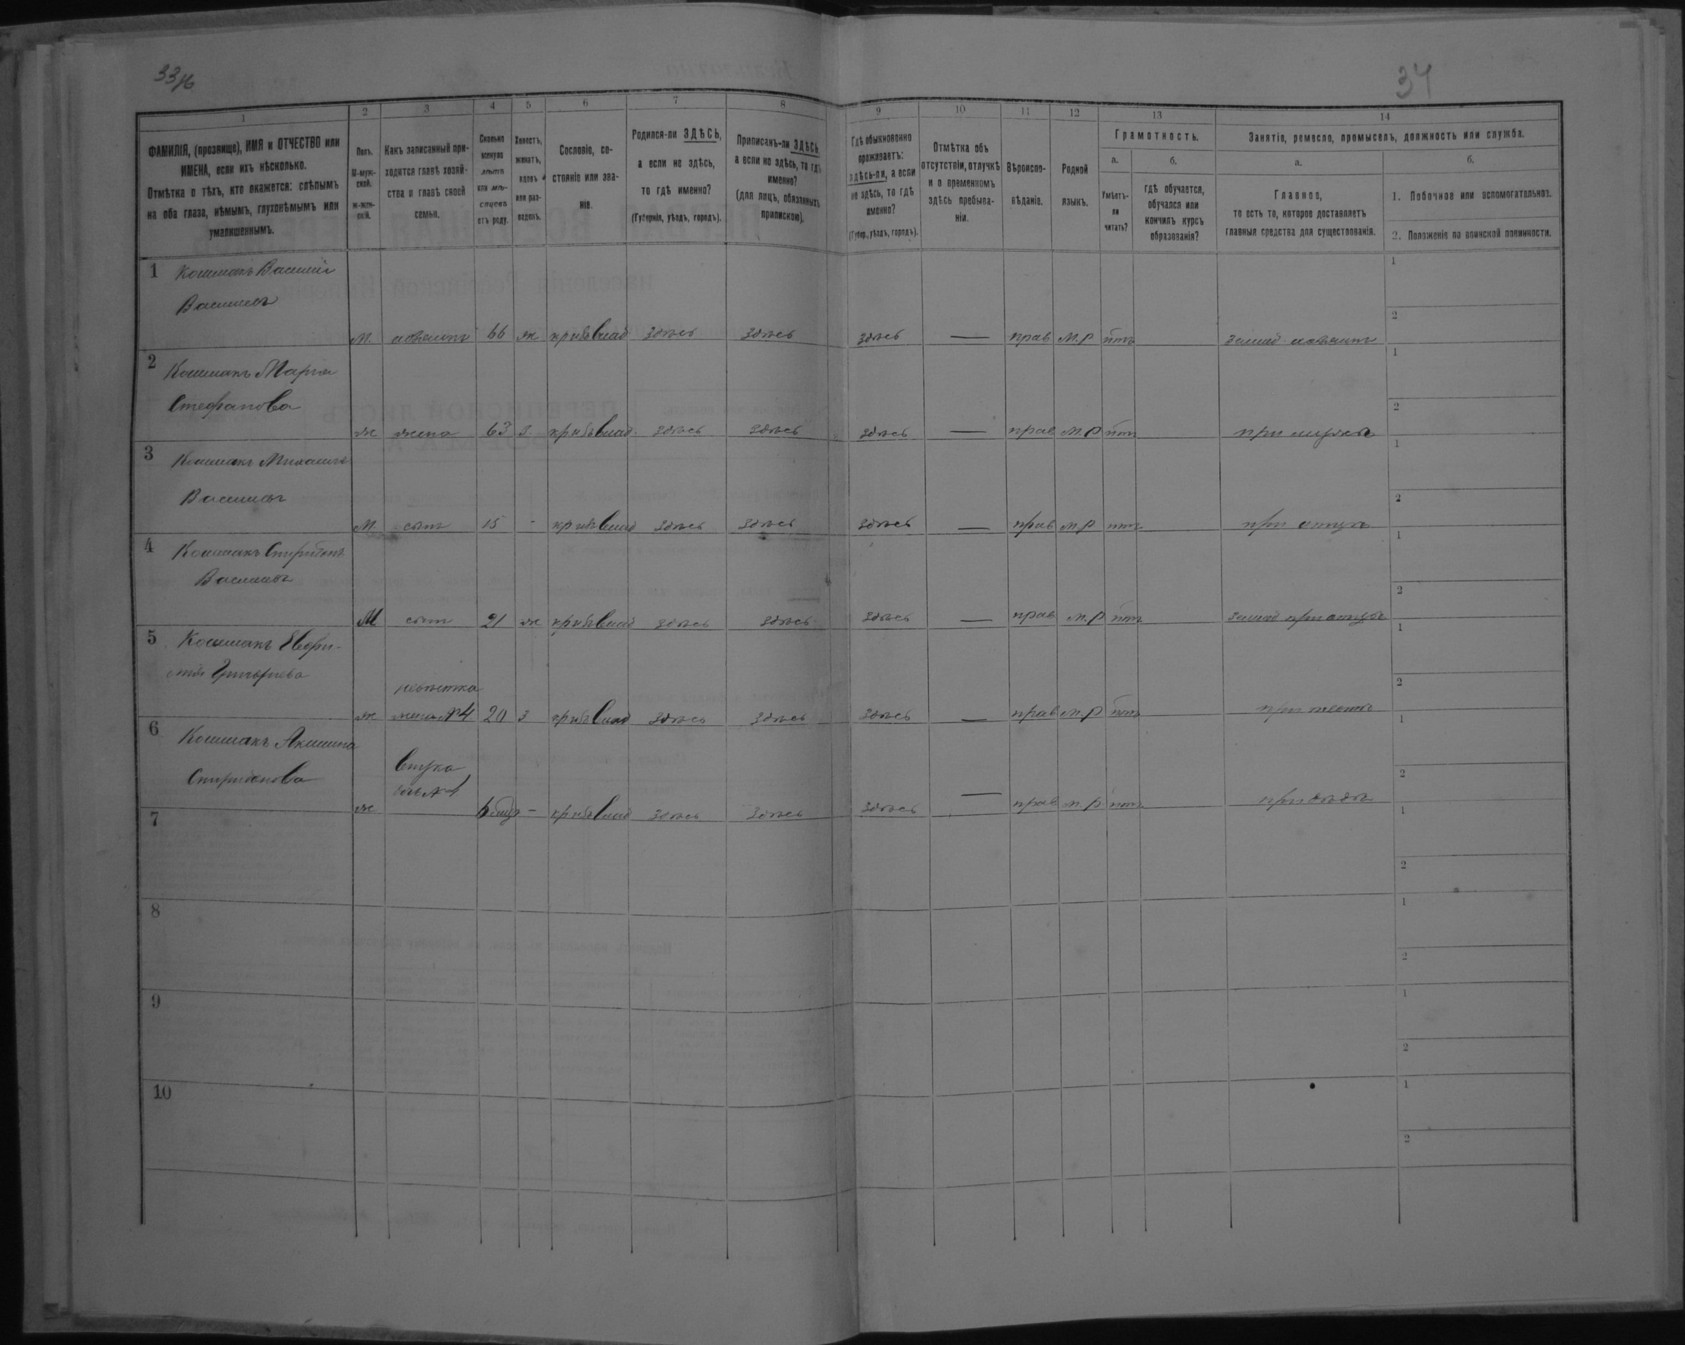 33/16
34
1
2
3
4
5
6
7
8
9
10
11
12
13
14
ФАМИЛІЯ, (прозвище), ИМЯ и ОТЧЕСТВО или
ИМЕНА, если ихъ нѣсколько.
Отмѣтка о тѣхъ, кто окажется: слѣпымъ
на оба глаза, нѣмымъ, глухонѣмымъ или
умалишеннымъ.
Полъ.
М-муж-
ской.
Ж-жен-
скій.
Какъ записанный при-
ходится главѣ хозяй-
ства и главѣ своей
семьи.
Сколько
минуло
лѣтъ
или мѣ-
сяцевъ
отъ роду.
Холостъ,
женатъ,
вдовъ
или раз-
веденъ.
Сословіе, со-
стояніе или зва-
ніе.
Родился-ли ЗДѢСЬ,
а если не здѣсь,
то гдѣ именно?
(Губернія, уѣздъ, городъ).
Приписанъ-ли ЗДѢСЬ,
а если не здѣсь, то гдѣ
именно?
(для лицъ, обязанныхъ
припискою).
Гдѣ обыкновенно
проживаетъ:
здѣсь-ли, а если
не здѣсь, то гдѣ
именно?
(Губер., уѣздъ, городъ).
Отмѣтка объ
отсутствіи, отлучкѣ
и о временномъ
здѣсь пребыва-
ніи.
Вѣроиспо-
вѣданіе.
Родной
языкъ.
Грамотность.
а.
б.
Умѣетъ-
ли
читать?
гдѣ обучается,
обучался или
кончилъ курсъ
образованія?
Занятіе, ремесло, промыселъ, должность или служба.
а.
б.
Главное,
то есть то, которое доставляетъ
главныя средства для существованія.
1. Побочное или вспомогательное.
2. Положеніе по воинской повинности.
1 Кошмакъ Василій
Васильевъ
М. хозяинъ 66 ж здѣсь здѣсь здѣсь — прав м.р нѣтъ хозяинъ
1
2
2 Кошмакъ Марія
Стефанова
ж жена 63 з здѣсь здѣсь здѣсь — прав м.р нѣтъ при мужѣ
1
2
3 Кошмакъ Михаилъ
Васильевъ
М. сынъ 15 - здѣсь здѣсь здѣсь — прав м.р нѣтъ при отцѣ
1
2
4 Кошмакъ Спиридонъ
Васильевъ
М сынъ 21 ж здѣсь здѣсь здѣсь — прав м.р нѣтъ при отцѣ
1
2
5 Кошмакъ
Григорьева
невѣстка
ж жена №4 20 з здѣсь здѣсь здѣсь — прав м.р нѣтъ
1
2
6 Кошмакъ Акилина
Спиридонова
внука
ж - здѣсь здѣсь здѣсь — прав м.р нѣтъ при дѣдѣ
1
2
7
1
2
8
1
2
9
1
2
10
1
2